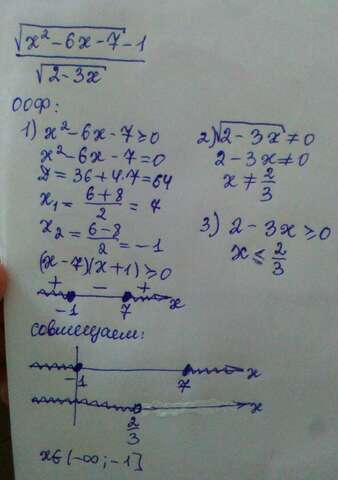 √(x² - 6x - 7) - 1
√(2 - 3x)
ООФ:
1) x² - 6x - 7 ≥ 0
x² - 6x - 7 = 0
Д = 36 + 4·7 = 64
x₁ = (6+8)/2 = 7
x₂ = (6-8)/2 = -1
(x - 7)(x + 1) ≥ 0
+ - +
-1 7 x
2) √(2 - 3x) ≠ 0
2 - 3x ≠ 0
x ≠ 2/3
3) 2 - 3x ≥ 0
x ≤ 2/3
совмещаем:
-1 7 x
2/3 x
x ∈ (-∞; -1]